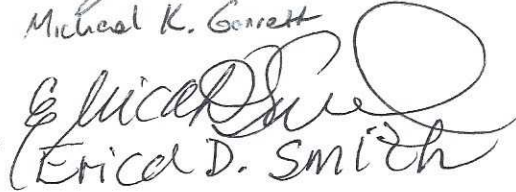 Michael K. Garrett
Erica D. Smith
(Erica D. Smith